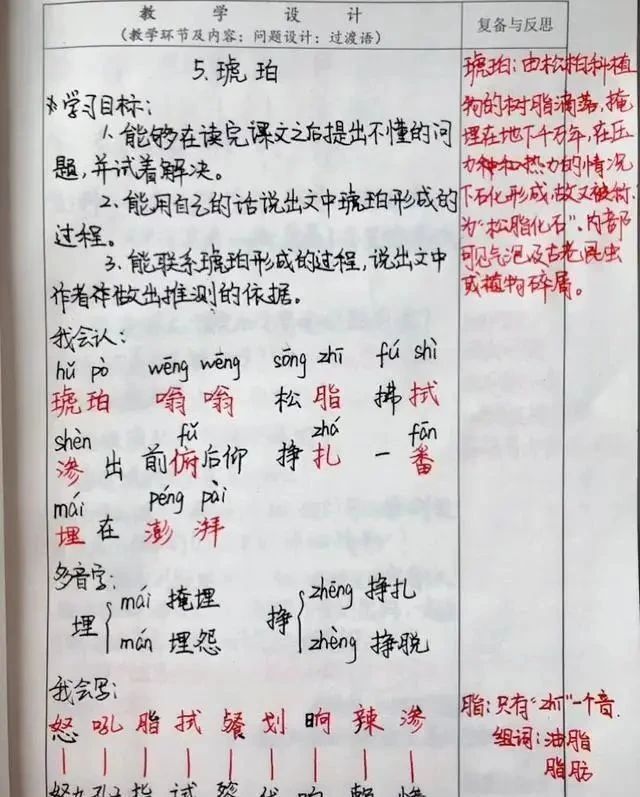 教 学 设 计
(教学环节及内容; 问题设计; 过渡语)
5. 琥珀
※学习目标:
1. 能够在读完课文之后提出不懂的问
题, 并试着解决。
2. 能用自己的话说出文中琥珀形成的
过程。
3. 能联系琥珀形成的过程, 说出文中
作者做出推测的依据。
我会认:
hǔ pò wēng wēng sōng zhī fú shì
琥珀 嗡嗡 松脂 拂拭
shèn fǔ zhá fān
渗出 前俯后仰 挣扎 一番
mái péng pài
埋在 澎湃
多音字:
埋 mái 掩埋 挣 zhēng 挣扎
mán 埋怨 zhèng 挣脱
我会写:
怒 吼 脂 拭 餐 划 晌 辣 渗
复备与反思
琥珀: 由松柏科植
物的树脂滴落, 掩
埋在地下千万年, 在压
力和热力的情况
下石化形成, 故又被称
为“松脂化石”。内部
可见气泡及古老昆虫
或植物碎屑。
脂: 只有“zhī”一个音.
组词: 油脂
脂肪